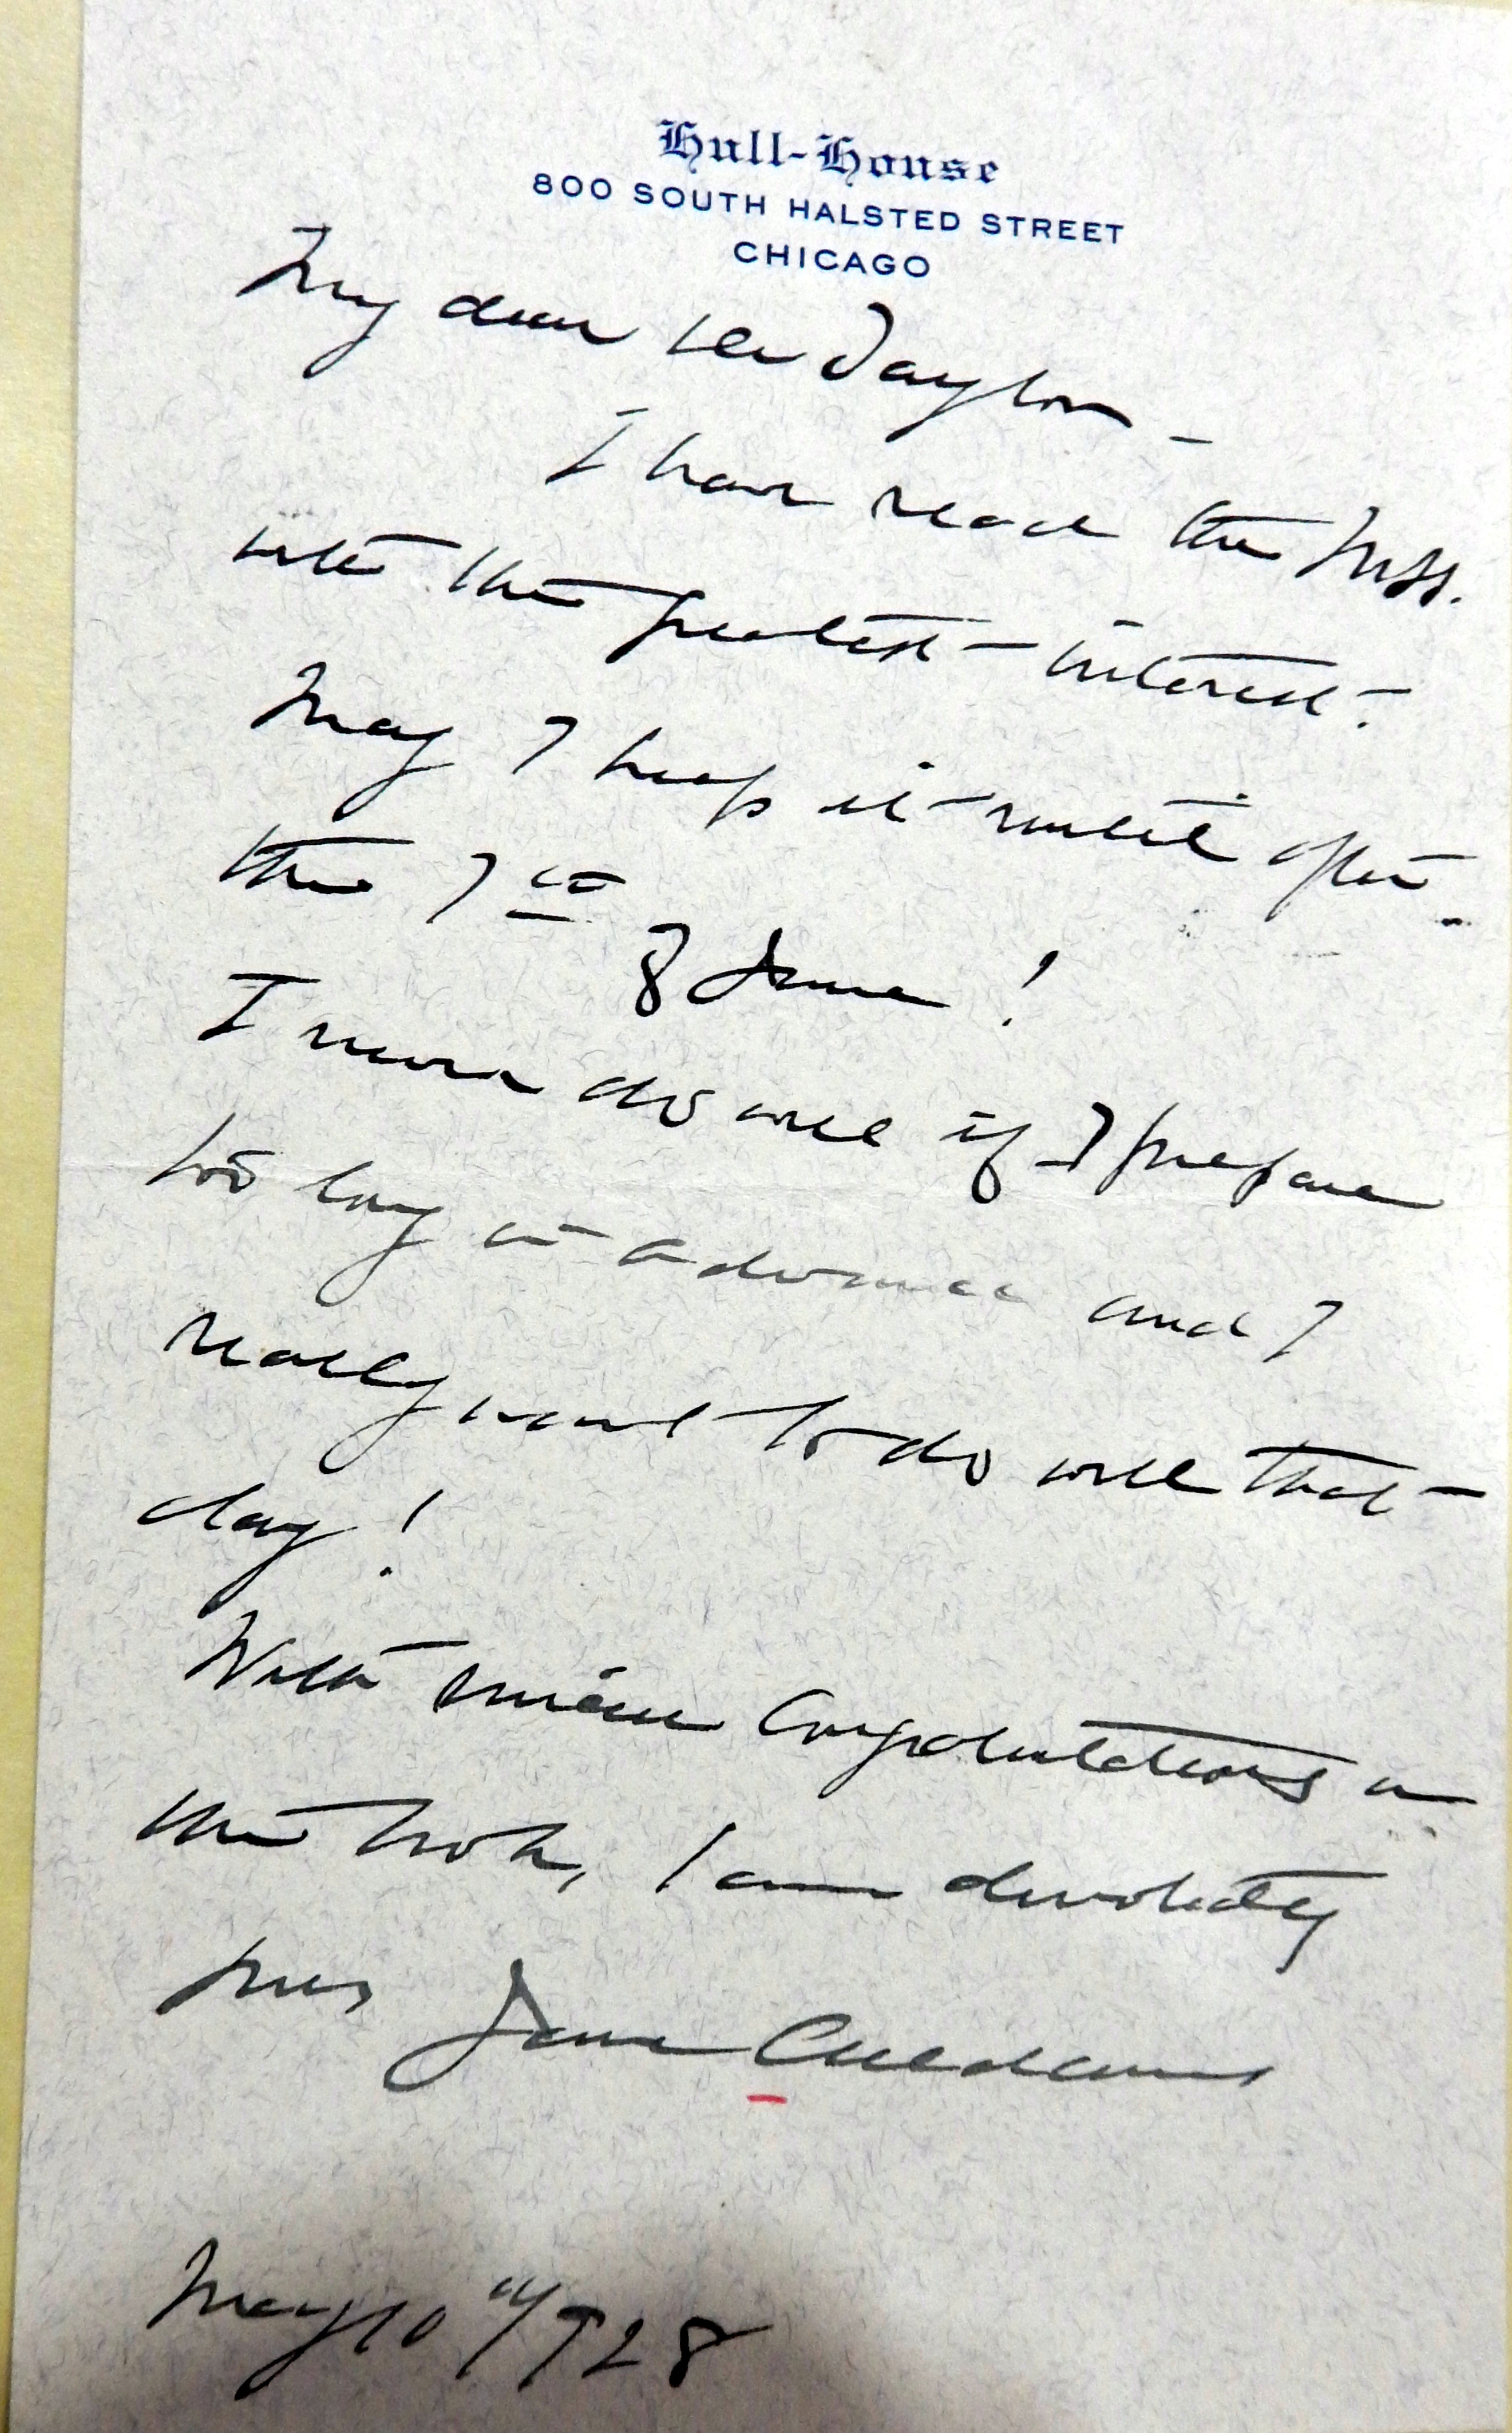 Hull-House
800 SOUTH HALSTED STREET
CHICAGO
My dear Mr Taylor -
I have read the Mss.
with the greatest interest.
May I keep it until after
the 7th
of June!
I never do well if I prepare
too long in advance and I
really want to do well that
day!
With sincere Congratulations on
the book, I am devotedly
yours Jane Addams
May 10th/928